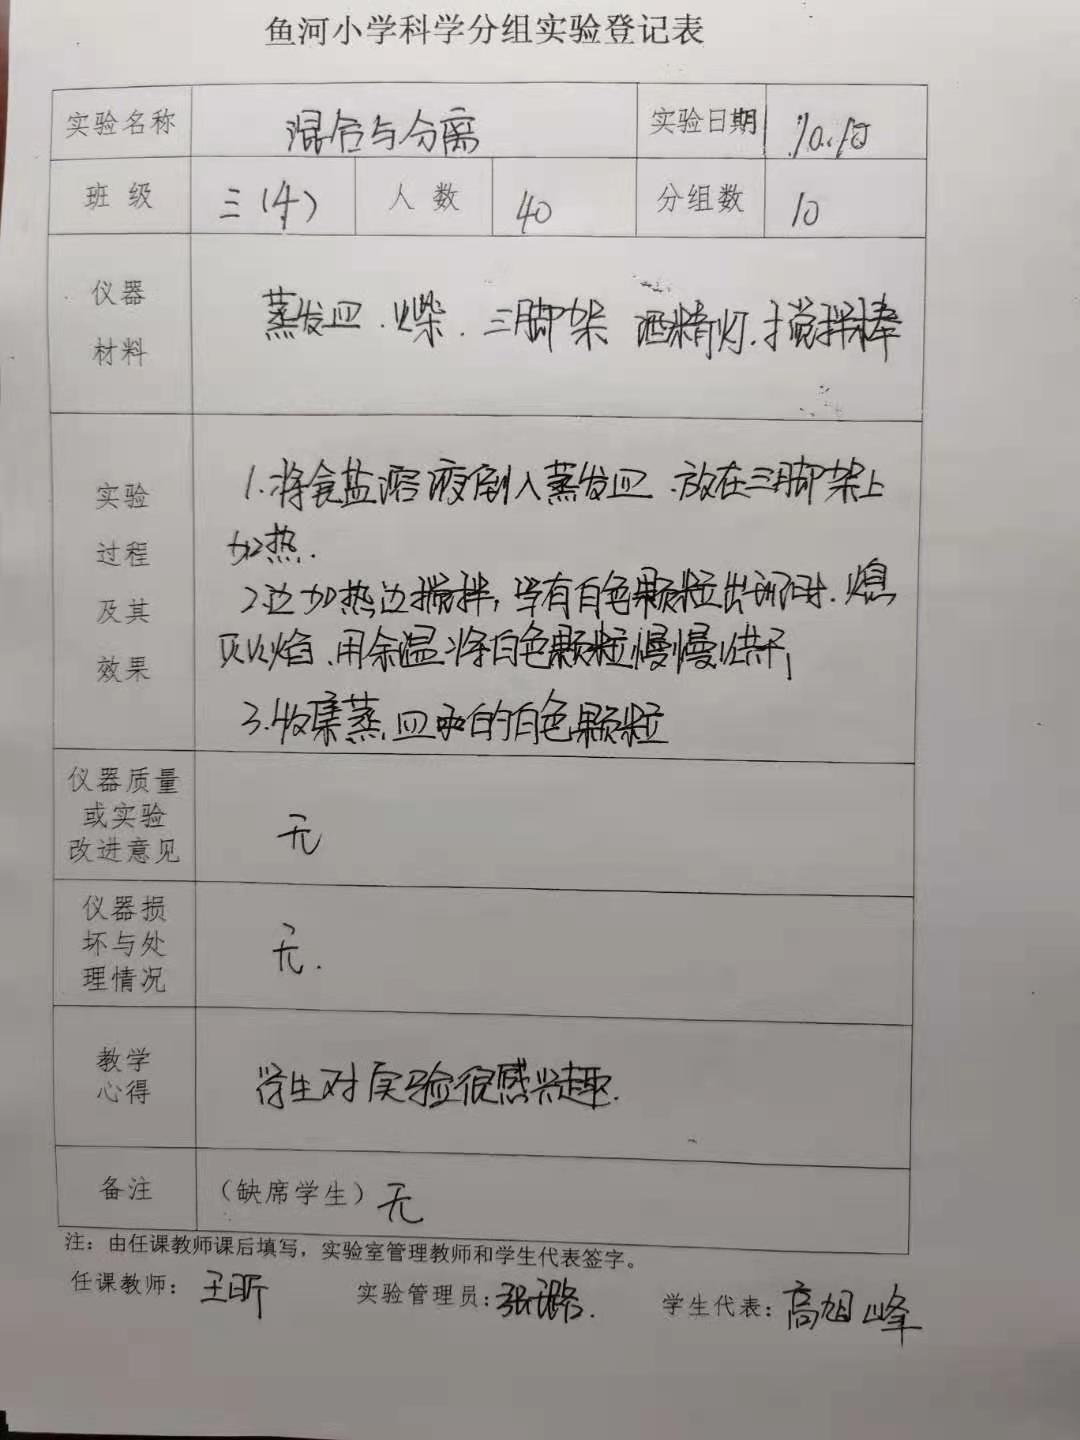 鱼河小学科学分组实验登记表
实验名称 混合与分离 实验日期 10.10
班 级 三(4) 人 数 40 分组数 10
仪器
材料
蒸发皿、火柴、三脚架 酒精灯、搅拌棒
实验
过程
及其
效果
1.将食盐溶液倒入蒸发皿、放在三脚架上
加热.
2边加热边搅拌,当有白色颗粒出现时、熄
灭火焰、用余温将白色颗粒慢慢烘干,
3.收集蒸 皿 的白色颗粒
仪器质量
或实验
改进意见
无
仪器损
坏与处
理情况
无.
教学
心得
学生对实验很感兴趣.
备注 (缺席学生) 无
注:由任课教师课后填写,实验室管理教师和学生代表签字。
任课教师: 王昕 实验管理员:张璐. 学生代表:高旭峰